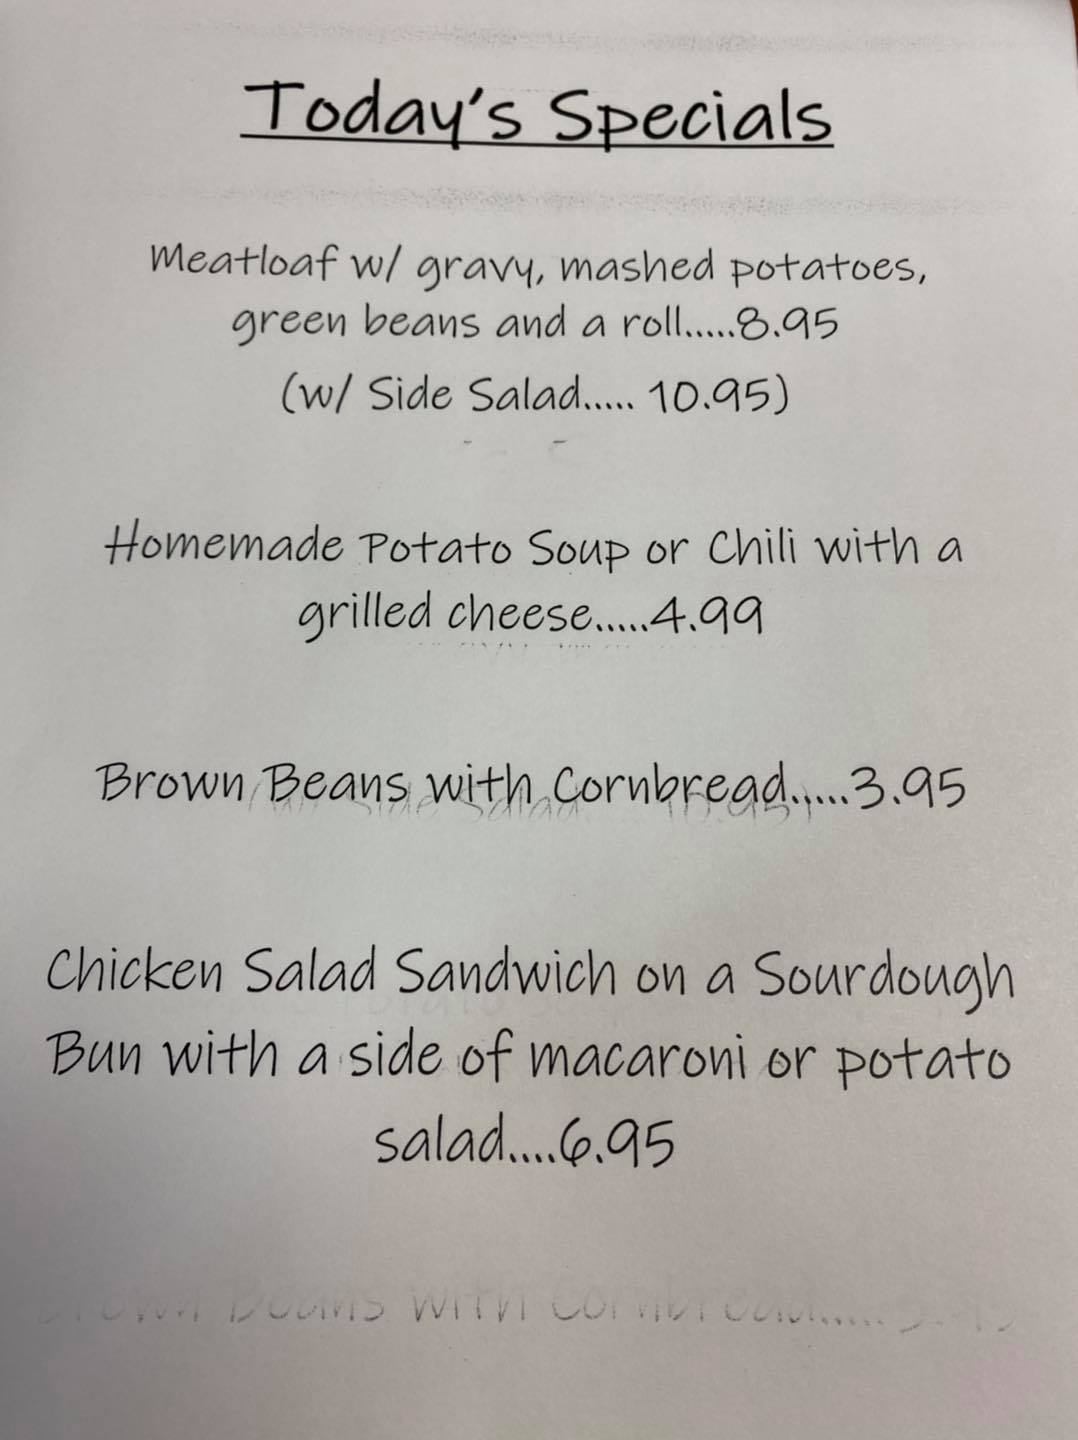 Today's Specials
Meatloaf w/ gravy, mashed potatoes,
green beans and a roll.....8.95
(w/ Side Salad..... 10.95)
Homemade Potato Soup or Chili with a
grilled cheese.....4.99
Brown Beans with Cornbread.....3.95
Chicken Salad Sandwich on a Sourdough
Bun with a side of macaroni or potato
salad....6.95
Brown Beans with Cornbread.....3.95